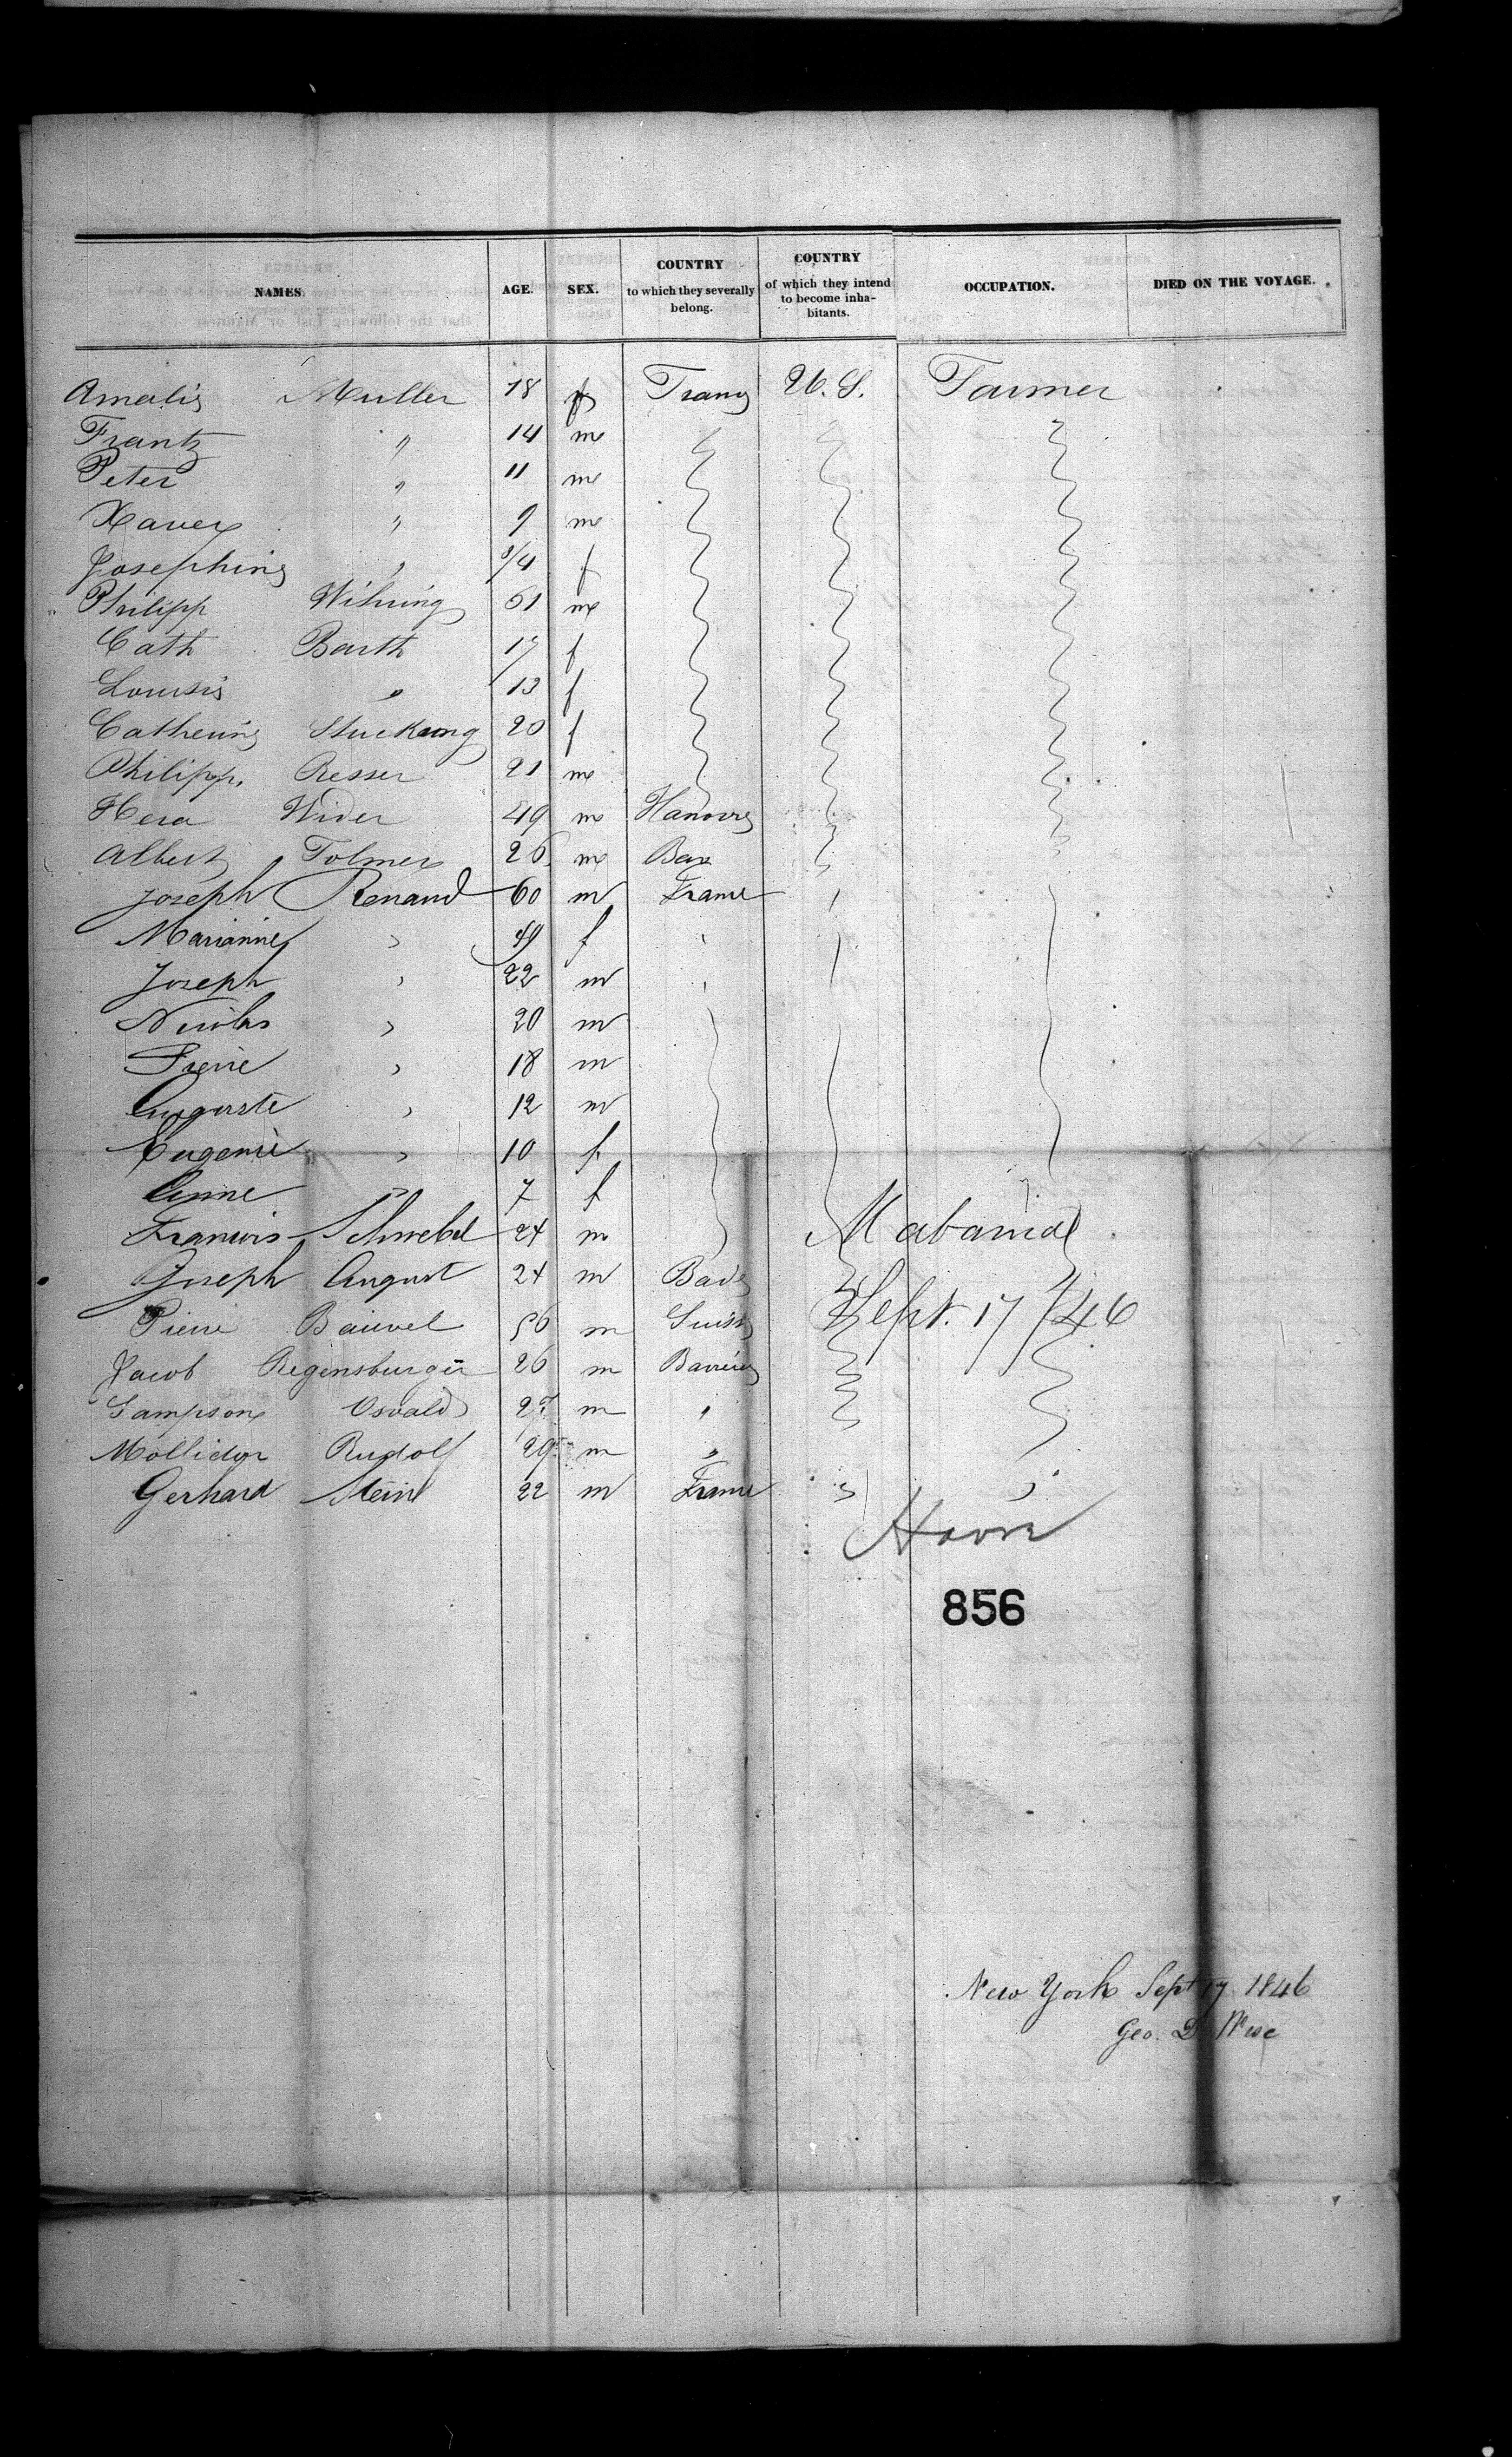 NAMES AGE. SEX. COUNTRY to which they severally belong. COUNTRY of which they intend to become inhabitants. OCCUPATION. DIED ON THE VOYAGE.
Amalie Muller 18 f France U. S. Farmer
Frantz " 14 m
Peter " 11 m
Xaver " 9 m
Josephine " 3/4 f
Philipp 51 m
Cath Barth 17 f
Louise " 13 f
Catherine 20 f
Philipp Resser 21 m
Wider 49 m Hanovre
Albert Tolmer 26 m Bav
Joseph Renaud 60 m France
Marianne " 49 f "
Joseph " 22 m "
Nicolas " 20 m
Pierre " 18 m
Auguste " 12 m
Eugenie " 10 f
Anne " 7 f
Francois Schwebel 24 m
Joseph August 24 m Bade
Pierre 56 m Suisse
Jacob Regensburger 26 m Baviere
Sampson Osvald m "
Rudolf 29 m "
Gerhard Stein 22 m France " "
Sept. 17/46
Havre
856
New York Sept 17 1846
Geo. D.